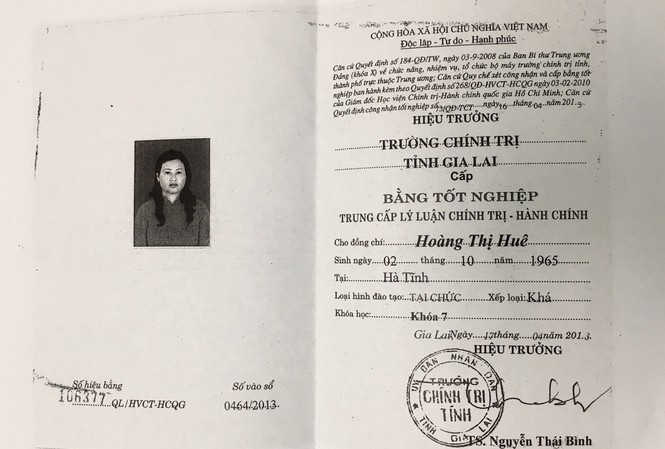 CỘNG HÒA XÃ HỘI CHỦ NGHĨA VIỆT NAM
Độc lập - Tự do - Hạnh phúc
Căn cứ Quyết định số 184-QĐ/TW, ngày 03-9-2008 của Ban Bí thư Trung ương
Đảng (khóa X) về chức năng, nhiệm vụ, tổ chức bộ máy trường chính trị tỉnh,
thành phố trực thuộc Trung ương; Căn cứ Quy chế xét công nhận và cấp bằng tốt
nghiệp ban hành kèm theo Quyết định số 268/QĐ-HVCT-HCQG ngày 03-02-2010
của Giám đốc Học viện Chính trị-Hành chính quốc gia Hồ Chí Minh; Căn cứ
Quyết định công nhận tốt nghiệp số 73/QĐ-TCT ngày 16 tháng 04 năm 2013
HIỆU TRƯỞNG
TRƯỜNG CHÍNH TRỊ
TỈNH GIA LAI
Cấp
BẰNG TỐT NGHIỆP
TRUNG CẤP LÝ LUẬN CHÍNH TRỊ - HÀNH CHÍNH
Cho đồng chí: Hoàng Thị Huê
Sinh ngày 02 tháng 10 năm 1965
Tại: Hà Tĩnh
Loại hình đào tạo: TẠI CHỨC Xếp loại: Khá
Khóa học: Khóa 7
Gia Lai Ngày 17 tháng 04 năm 2013
HIỆU TRƯỞNG
ỦY BAN NHÂN DÂN
TRƯỜNG
CHÍNH TRỊ
TỈNH
TỈNH GIA LAI
TS. Nguyễn Thái Bình
Số hiệu bằng
106377 QL/HVCT-HCQG
Số vào sổ
0464/2013